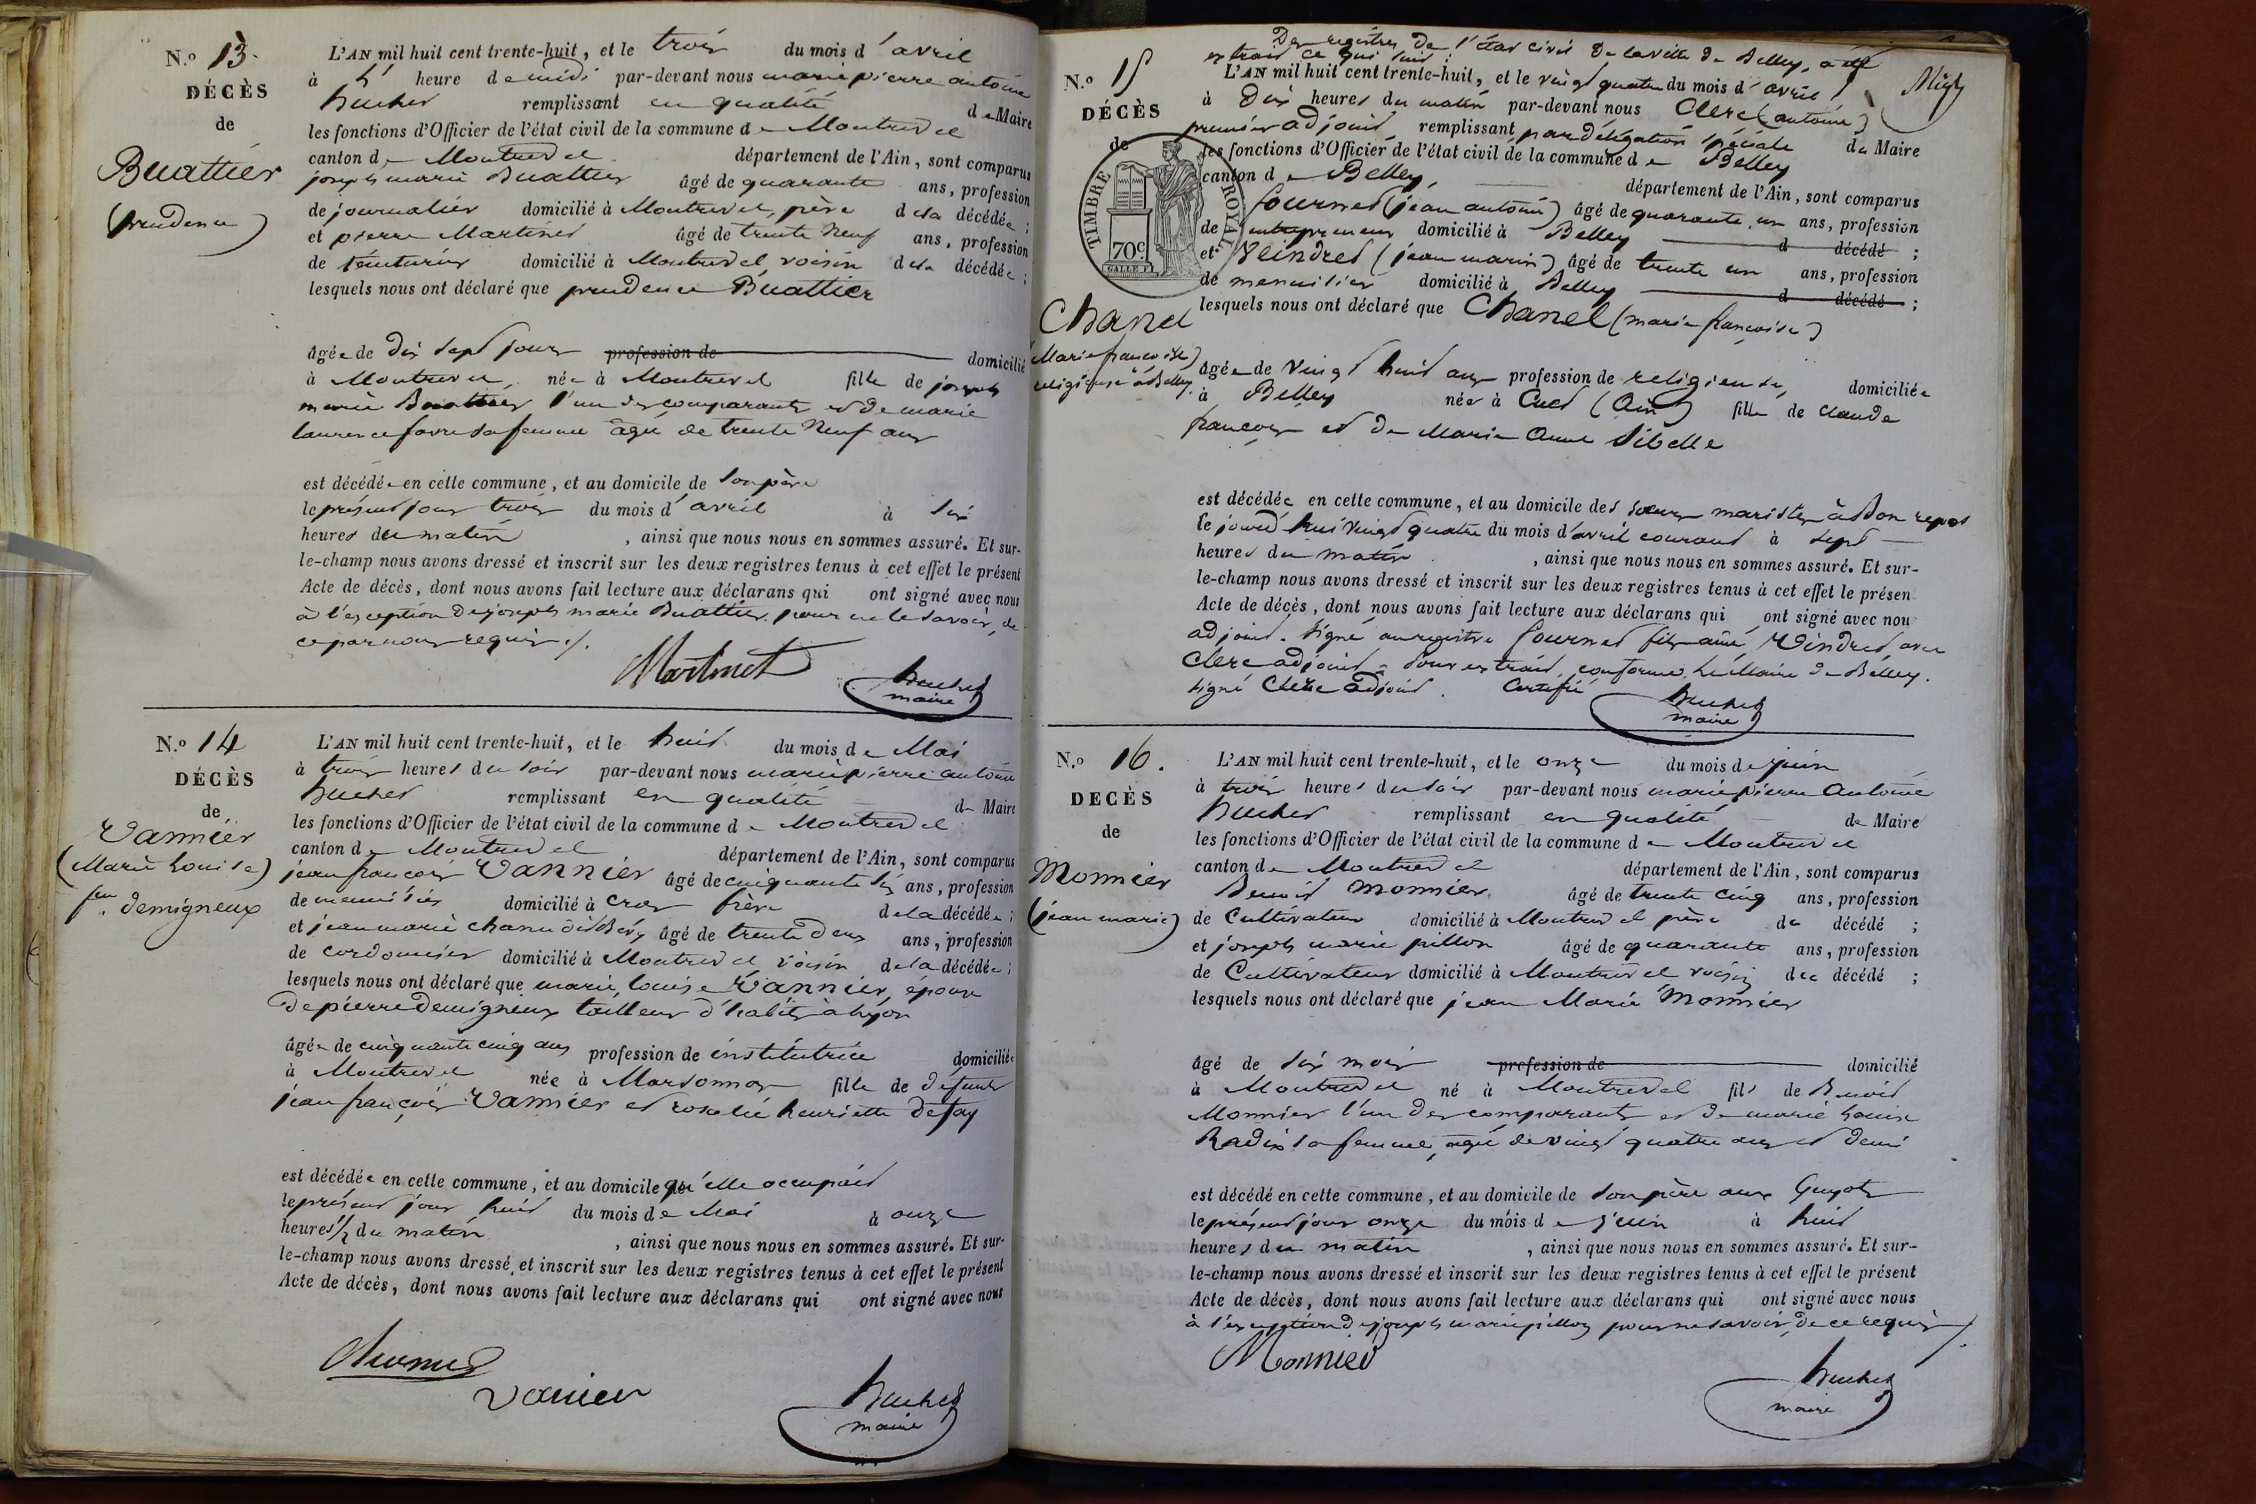 N.o 13.
DÉCÈS
de
Buattier
(prudence)
L'AN mil huit cent trente-huit, et le trois du mois d'avril
à heure de midi par-devant nous marie pierre antoine
huchet remplissant en qualité de Maire
les fonctions d'Officier de l'état civil de la commune de Montrevel
canton de Montrevel département de l'Ain, sont comparus
joseph marie Buattier âgé de quarante ans, profession
de journalier domicilié à Montrevel, père de la décédée ;
et pierre Martinet âgé de trente neuf ans, profession
de teinturier domicilié à Montrevel voisin de la décédée ;
lesquels nous ont déclaré que prudence Buattier
âgée de dix sept jours profession de domicilié
à Montrevel, née à Montrevel fille de joseph
marie Buattier l'un des comparants et de marie
laurence favre sa femme âgée de trente neuf ans
est décédée en cette commune, et au domicile de son père
le présent jour trois du mois d'avril à six
heures du matin , ainsi que nous nous en sommes assuré. Et sur-
le-champ nous avons dressé et inscrit sur les deux registres tenus à cet effet le présent
Acte de décès, dont nous avons fait lecture aux déclarans qui ont signé avec nous
à l'exception de joseph marie Buattier, pour ne le savoir, de
ce par nous requis ./.
Martinet
huchet
maire
N.o 14
DÉCÈS
de
Vannier
(Marie Louise)
fem. demigneux
L'AN mil huit cent trente-huit, et le huit du mois de Mai
à trois heures du soir par-devant nous marie pierre antoine
huchet remplissant en qualité de Maire
les fonctions d'Officier de l'état civil de la commune de Montrevel
canton de Montrevel département de l'Ain, sont comparus
jean françois Vannier âgé de cinquante six ans, profession
de menuisier domicilié à Cras frère de la décédée ;
et jean marie âgé de trente deux ans, profession
de cordonnier domicilié à Montrevel voisin de la décédée ;
lesquels nous ont déclaré que marie louise Vannier, epouse
de pierre demigneux tailleur d'habits à Lyon
âgée de cinquante cinq ans profession de institutrice domiciliée
à Montrevel née à Marsonnas fille de defunts
jean françois Vannier et rosalie henriette Defay
est décédée en cette commune, et au domicile qu'elle occupait
le présent jour huit du mois de Mai à onze
heures 1/2 du matin , ainsi que nous nous en sommes assuré. Et sur-
le-champ nous avons dressé et inscrit sur les deux registres tenus à cet effet le présent
Acte de décès, dont nous avons fait lecture aux déclarans qui ont signé avec nous
vanier
huchet
maire
Des registres de l'état civil de la ville de Belley, a été
extrait ce qui suit :
N.o 15
DÉCÈS
de
TIMBRE ROYAL
70c.
Chanel
(Marie françoise)
religieuse à Belley.
L'AN mil huit cent trente-huit, et le vingt quatre du mois d'avril
à dix heures du matin par-devant nous Clerc (antoine)
premier adjoint remplissant par délégation spéciale du Maire
les fonctions d'Officier de l'état civil de la commune de Belley
canton de Belley, département de l'Ain, sont comparus
fournet (jean antoine) âgé de quarante un ans, profession
de entrepreneur domicilié à Belley d décédé ;
et Veindret (jean marin) âgé de trente un ans, profession
de menuisier domicilié à Belley d décédé ;
lesquels nous ont déclaré que Chanel (marie françoise)
âgée de Vingt huit ans profession de religieuse, domiciliée
à Belley née à Cuet (Ain) fille de claude
françois et de Marie Anne Sibelle
est décédée en cette commune, et au domicile des soeurs maristes à bon repos
le jourd'hui vingt quatre du mois d'avril courant à sept
heures du matin , ainsi que nous nous en sommes assuré. Et sur-
le-champ nous avons dressé et inscrit sur les deux registres tenus à cet effet le présen
Acte de décès, dont nous avons fait lecture aux déclarans qui ont signé avec nou
adjoint. Signé au registre fournet fils ainé, Veindret, avec
Clerc adjoint = Pour extrait conforme Le Maire de Belley.
signé Clerc adjoint. Certifié
huchet
maire
N.o 16.
DECÈS
de
Monnier
(jean marie)
L'AN mil huit cent trente-huit, et le onze du mois de juin
à trois heures du soir par-devant nous marie pierre Antoine
huchet remplissant en qualité de Maire
les fonctions d'Officier de l'état civil de la commune de Montrevel
canton de Montrevel département de l'Ain, sont comparus
Benoit Monnier âgé de trente cinq ans, profession
de Cultivateur domicilié à Montrevel père du décédé ;
et joseph marie pillon âgé de quarante ans, profession
de Cultivateur domicilié à Montrevel voisin du décédé ;
lesquels nous ont déclaré que jean Marie Monnier
âgé de six mois profession de domicilié
à Montrevel né à Montrevel fils de Benoit
Monnier l'un des comparants et de marie Louise
Radix sa femme, âgée de vingt quatre ans et demi
est décédé en cette commune, et au domicile de son père aux Guyots
le présent jour onze du mois de juin à huit
heures du matin , ainsi que nous nous en sommes assuré. Et sur-
le-champ nous avons dressé et inscrit sur les deux registres tenus à cet effet le présent
Acte de décès, dont nous avons fait lecture aux déclarans qui ont signé avec nous
à l'exception de joseph marie pillon pour ne savoir, de ce requis ./.
Monnier
huchet
maire